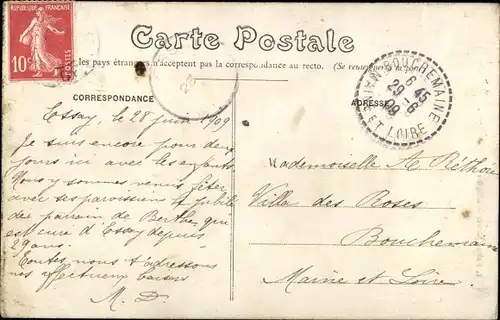 REPUBLIQUE FRANÇAISE
10c
POSTES
Carte Postale
les pays étrangers n'acceptent pas la correspondance au recto. (Se renseigner
CORRESPONDANCE
ADRESSE
BOUCHEMAINE
6 45
29 - 6
09
MAINE ET LOIRE
Essay, le 28 juin 1909
Je suis encore pour deux
jours ici avec les enfants
Nous y sommes venus fêter
avec ses paroissiens le jubilé
du parrain de Berthe, qui
est curé d'Essay depuis
29 ans.
Toutes nous t'adressons
nos affectueux baisers
M. D.
Mademoiselle A. Réthoré
Villa des Roses
Bouchemaine
Maine et Loire